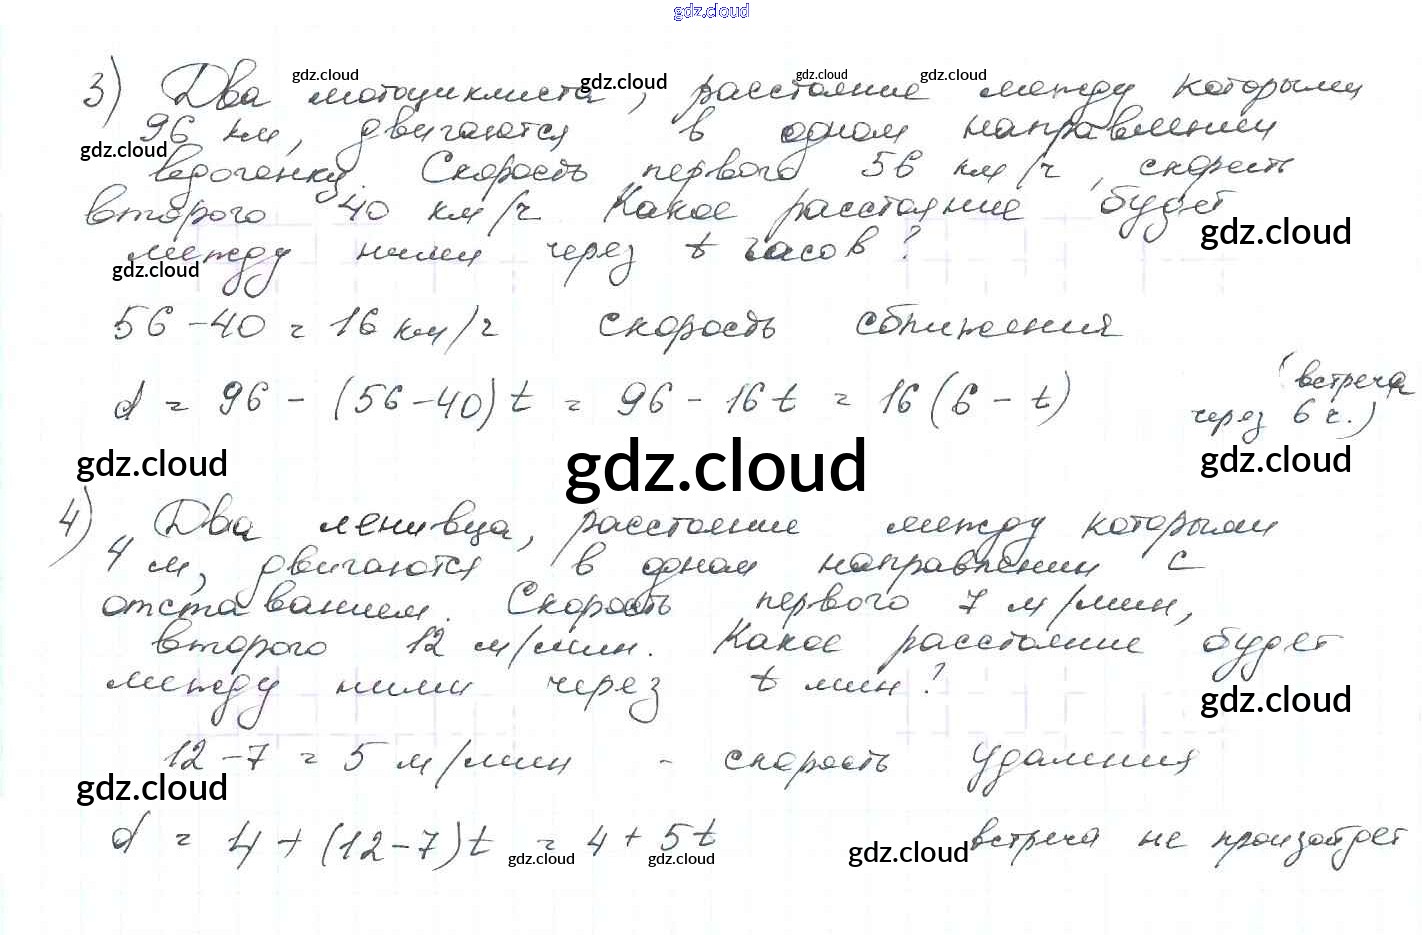 gdz.cloud
3) Два мотоциклиста, расстояние между которыми
gdz.cloud gdz.cloud gdz.cloud gdz.cloud
96 км, двигаются в одном направлении
gdz.cloud
вдогонку. Скорость первого 56 км/ч, скорость
второго 40 км/ч Какое расстояние будет
gdz.cloud
между ними через t часов?
gdz.cloud
56-40 = 16 км/ч скорость сближения
d = 96 - (56-40)t = 96 - 16t = 16(6 - t) (встреча
через 6 ч.)
gdz.cloud gdz.cloud gdz.cloud
4) Два ленивца, расстояние между которыми
4 м, двигаются в одном направлении с
отставанием. Скорость первого 7 м/мин,
второго 12 м/мин. Какое расстояние будет
между ними через t мин?
gdz.cloud
12-7 = 5 м/мин - скорость удаления
gdz.cloud
d = 4 + (12-7)t = 4 + 5t встреча не произойдет
gdz.cloud gdz.cloud gdz.cloud